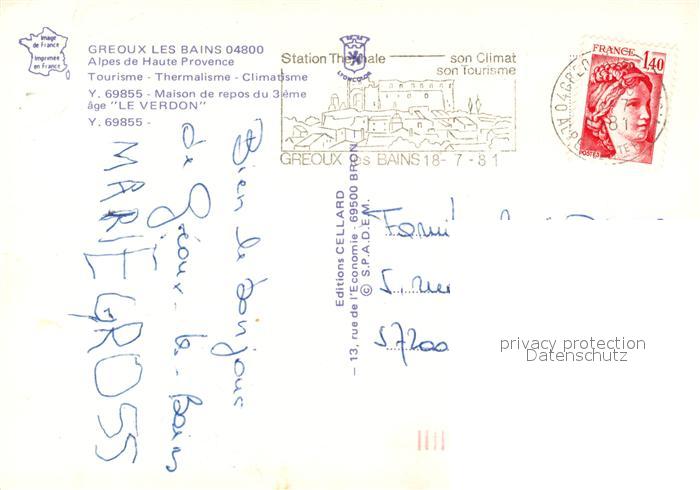 Image
de France
Imprimée
en France
GREOUX LES BAINS 04800
Alpes de Haute Provence
Tourisme - Thermalisme - Climatisme
Y. 69855 - Maison de repos du 3ème
âge "LE VERDON"
Y. 69855 -
Bien le bonjour
de Gréoux-les-Bains
MARIE GROSS
Station Thermale
son Climat
son Tourisme
GREOUX les BAINS 18-7-81
FRANCE
1,40
POSTES
Editions CELLARD
- 13, rue de l'Economie - 69500 BRON
© S.P.A.D.E.M.
Famil
5, rue
57200
privacy protection
Datenschutz